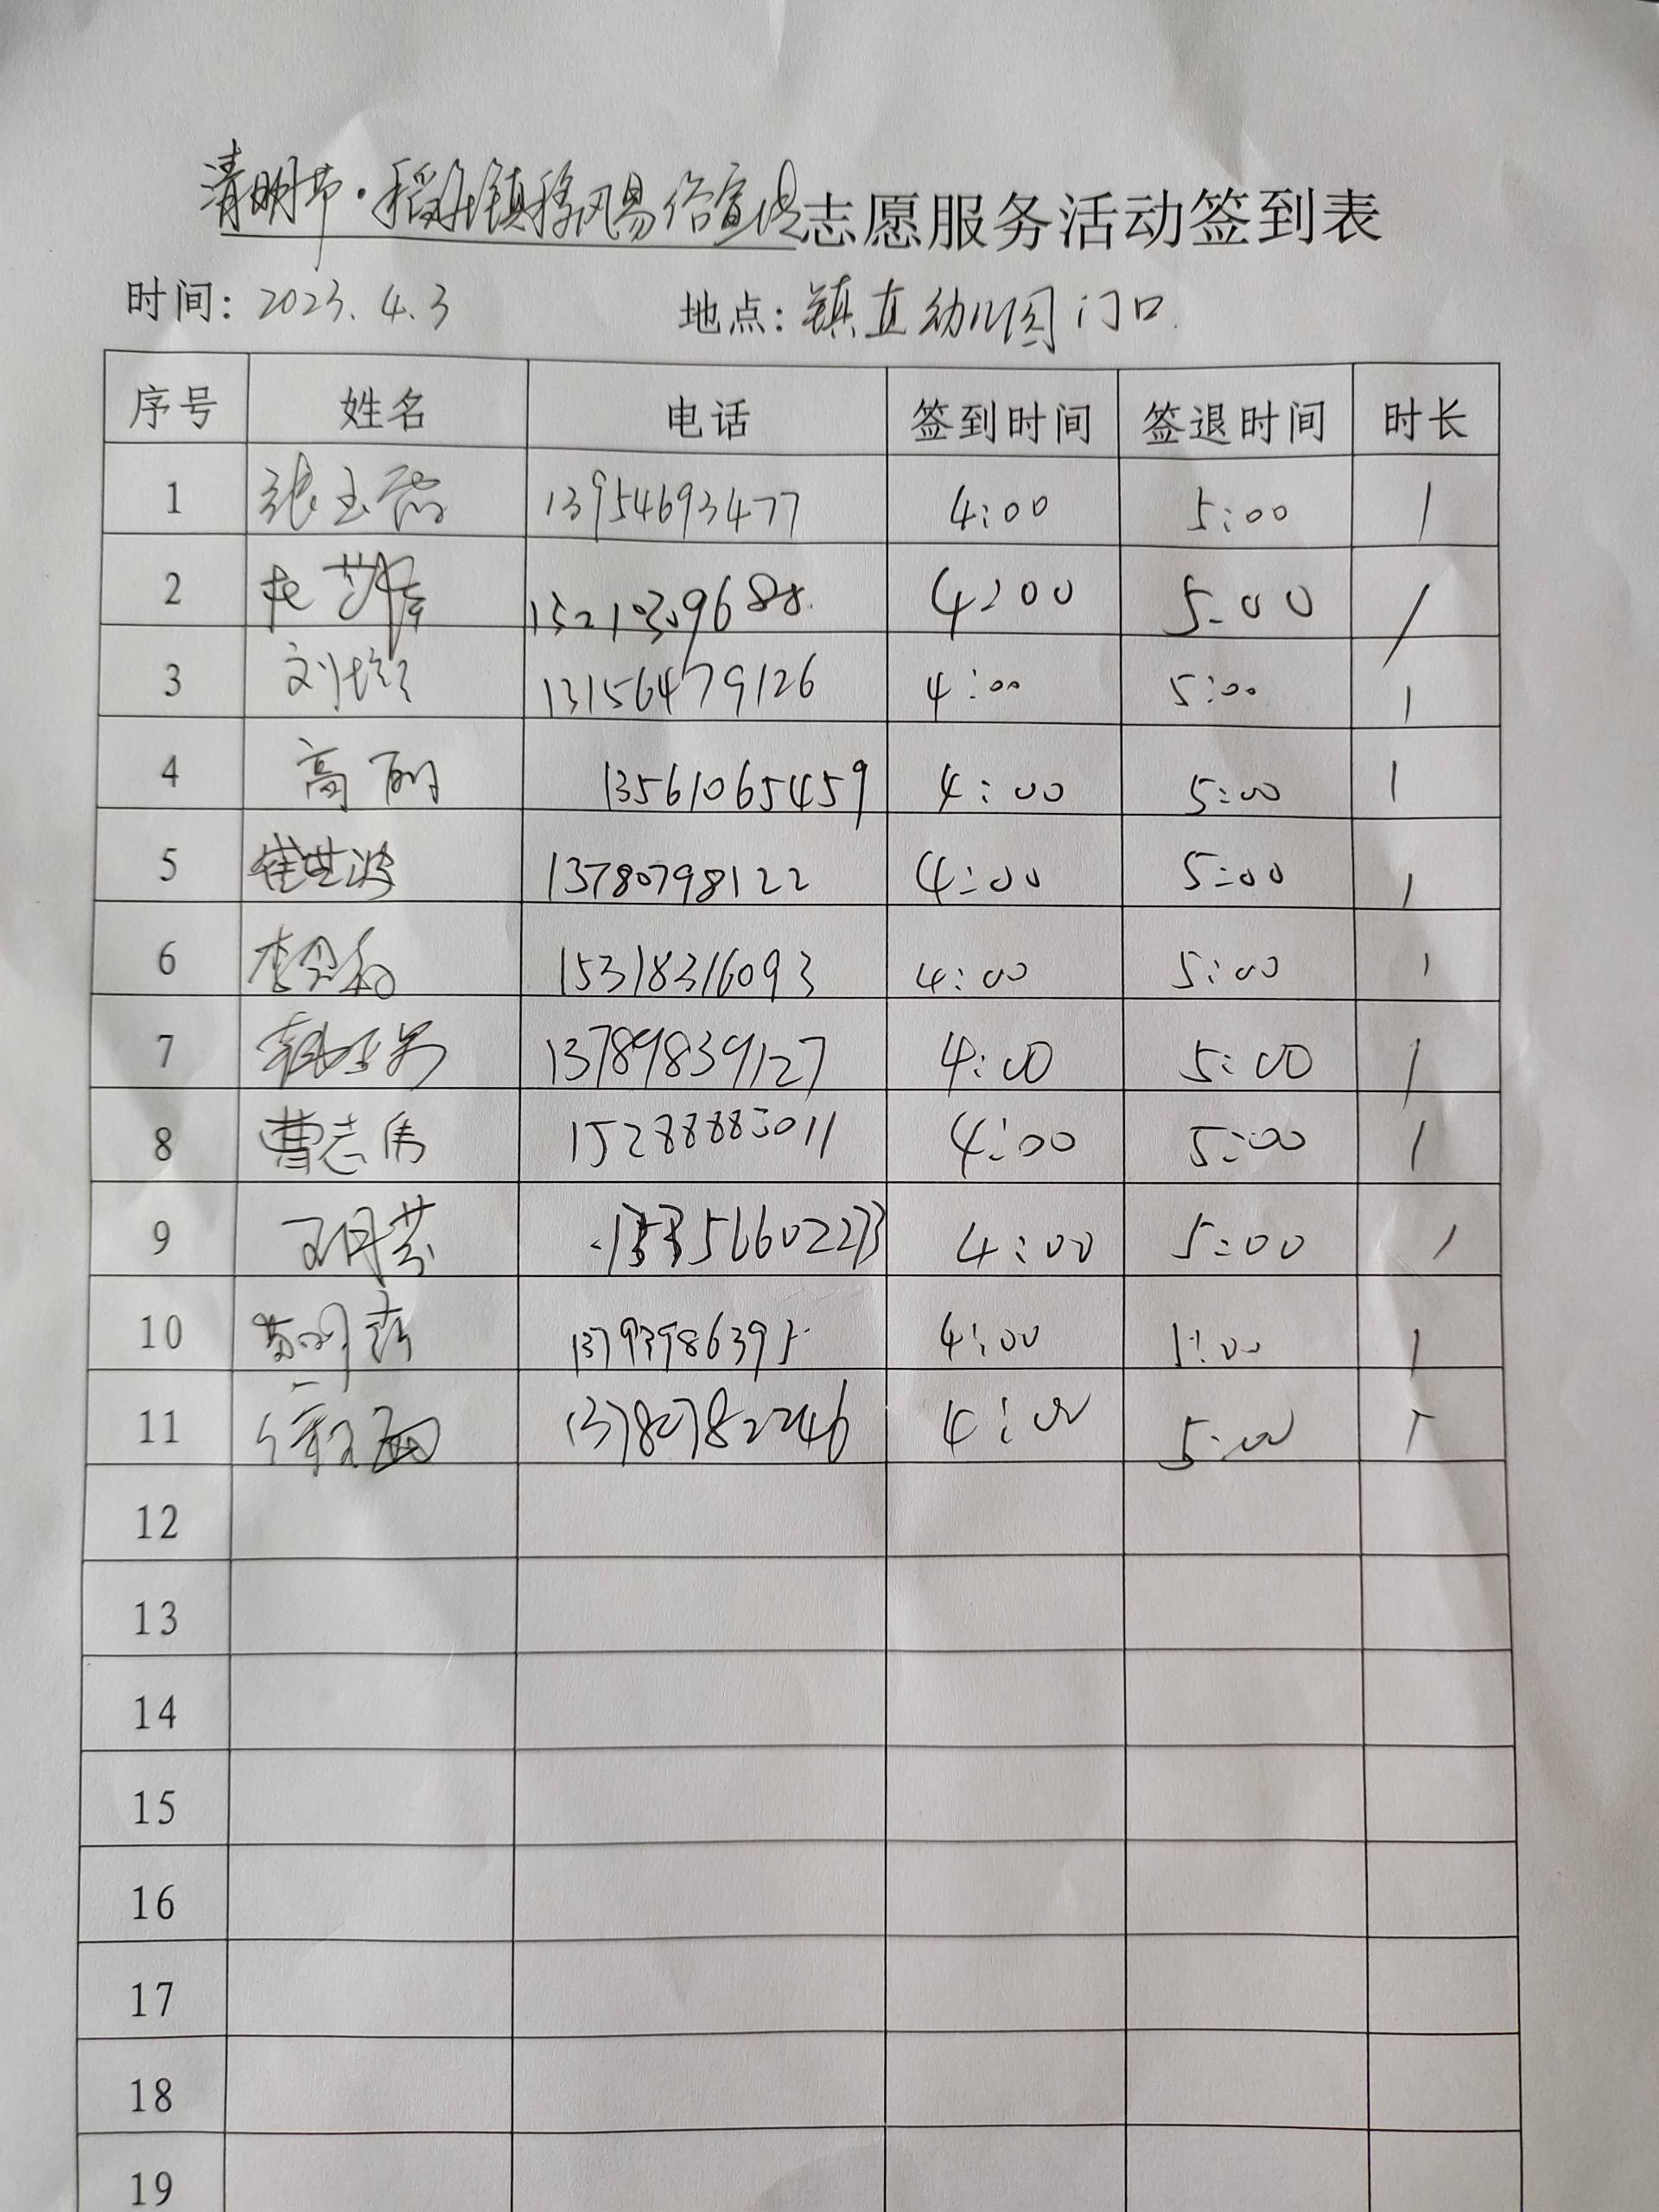 清明节·稻庄镇移风易俗宣传志愿服务活动签到表
时间: 2023.4.3 地点: 镇直幼儿园门口
序号 姓名 电话 签到时间 签退时间 时长
1 张玉 13954693477 4:00 5:00 1
2 4:00 5:00 1
3 刘 13156479126 4:00 5:00 1
4 高 13561065459 4:00 5:00 1
5 崔世波 13780798122 4:00 5:00 1
6 李 15318316093 4:00 5:00 1
7 13789839127 4:00 5:00 1
8 曹志伟 15288883011 4:00 5:00 1
9 4:00 5:00 1
10 4:00 5:00 1
11 13780782246 4:00 5:00 1
12
13
14
15
16
17
18
19